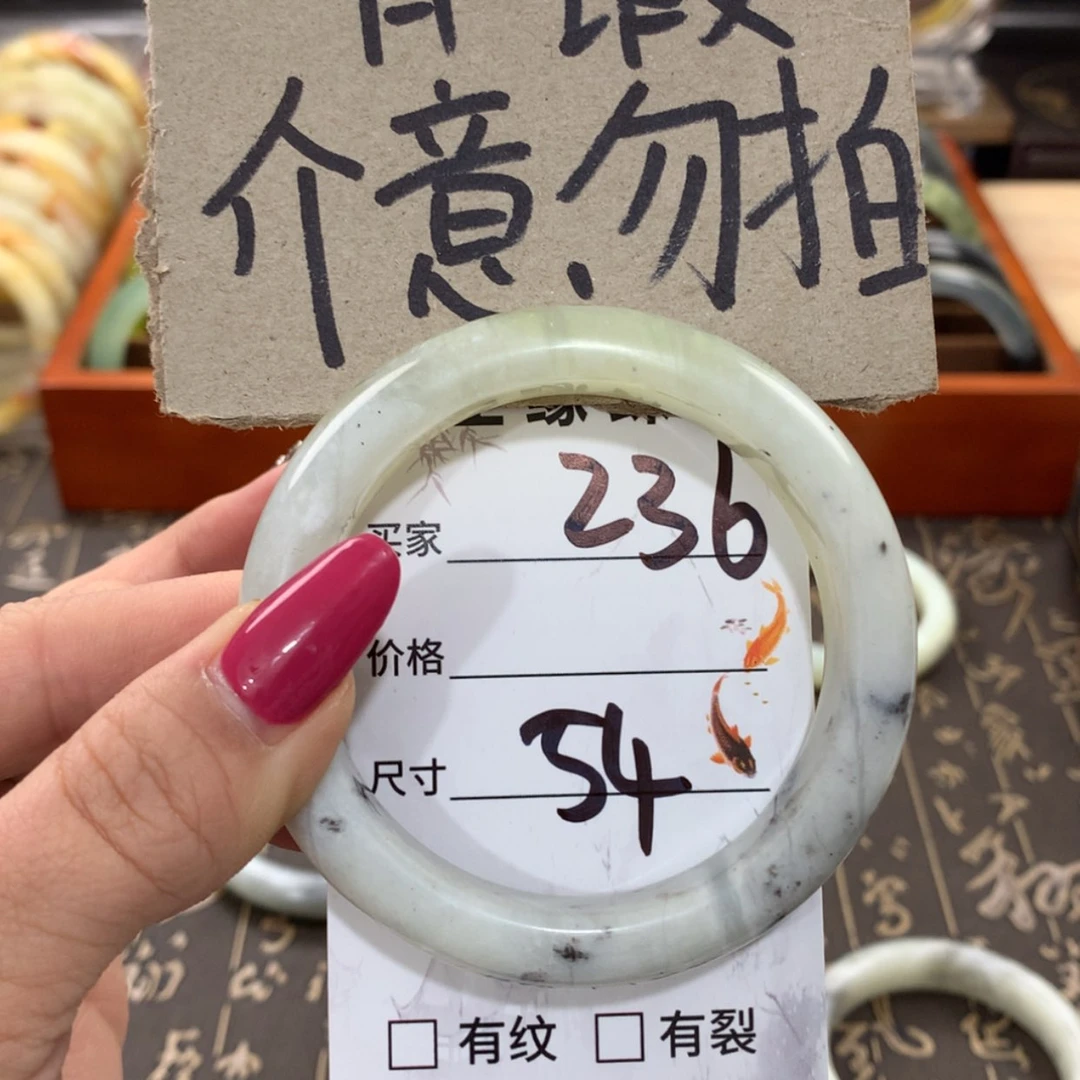 有瑕
介意、勿拍
买家 236
价格
尺寸 54
有纹 有裂